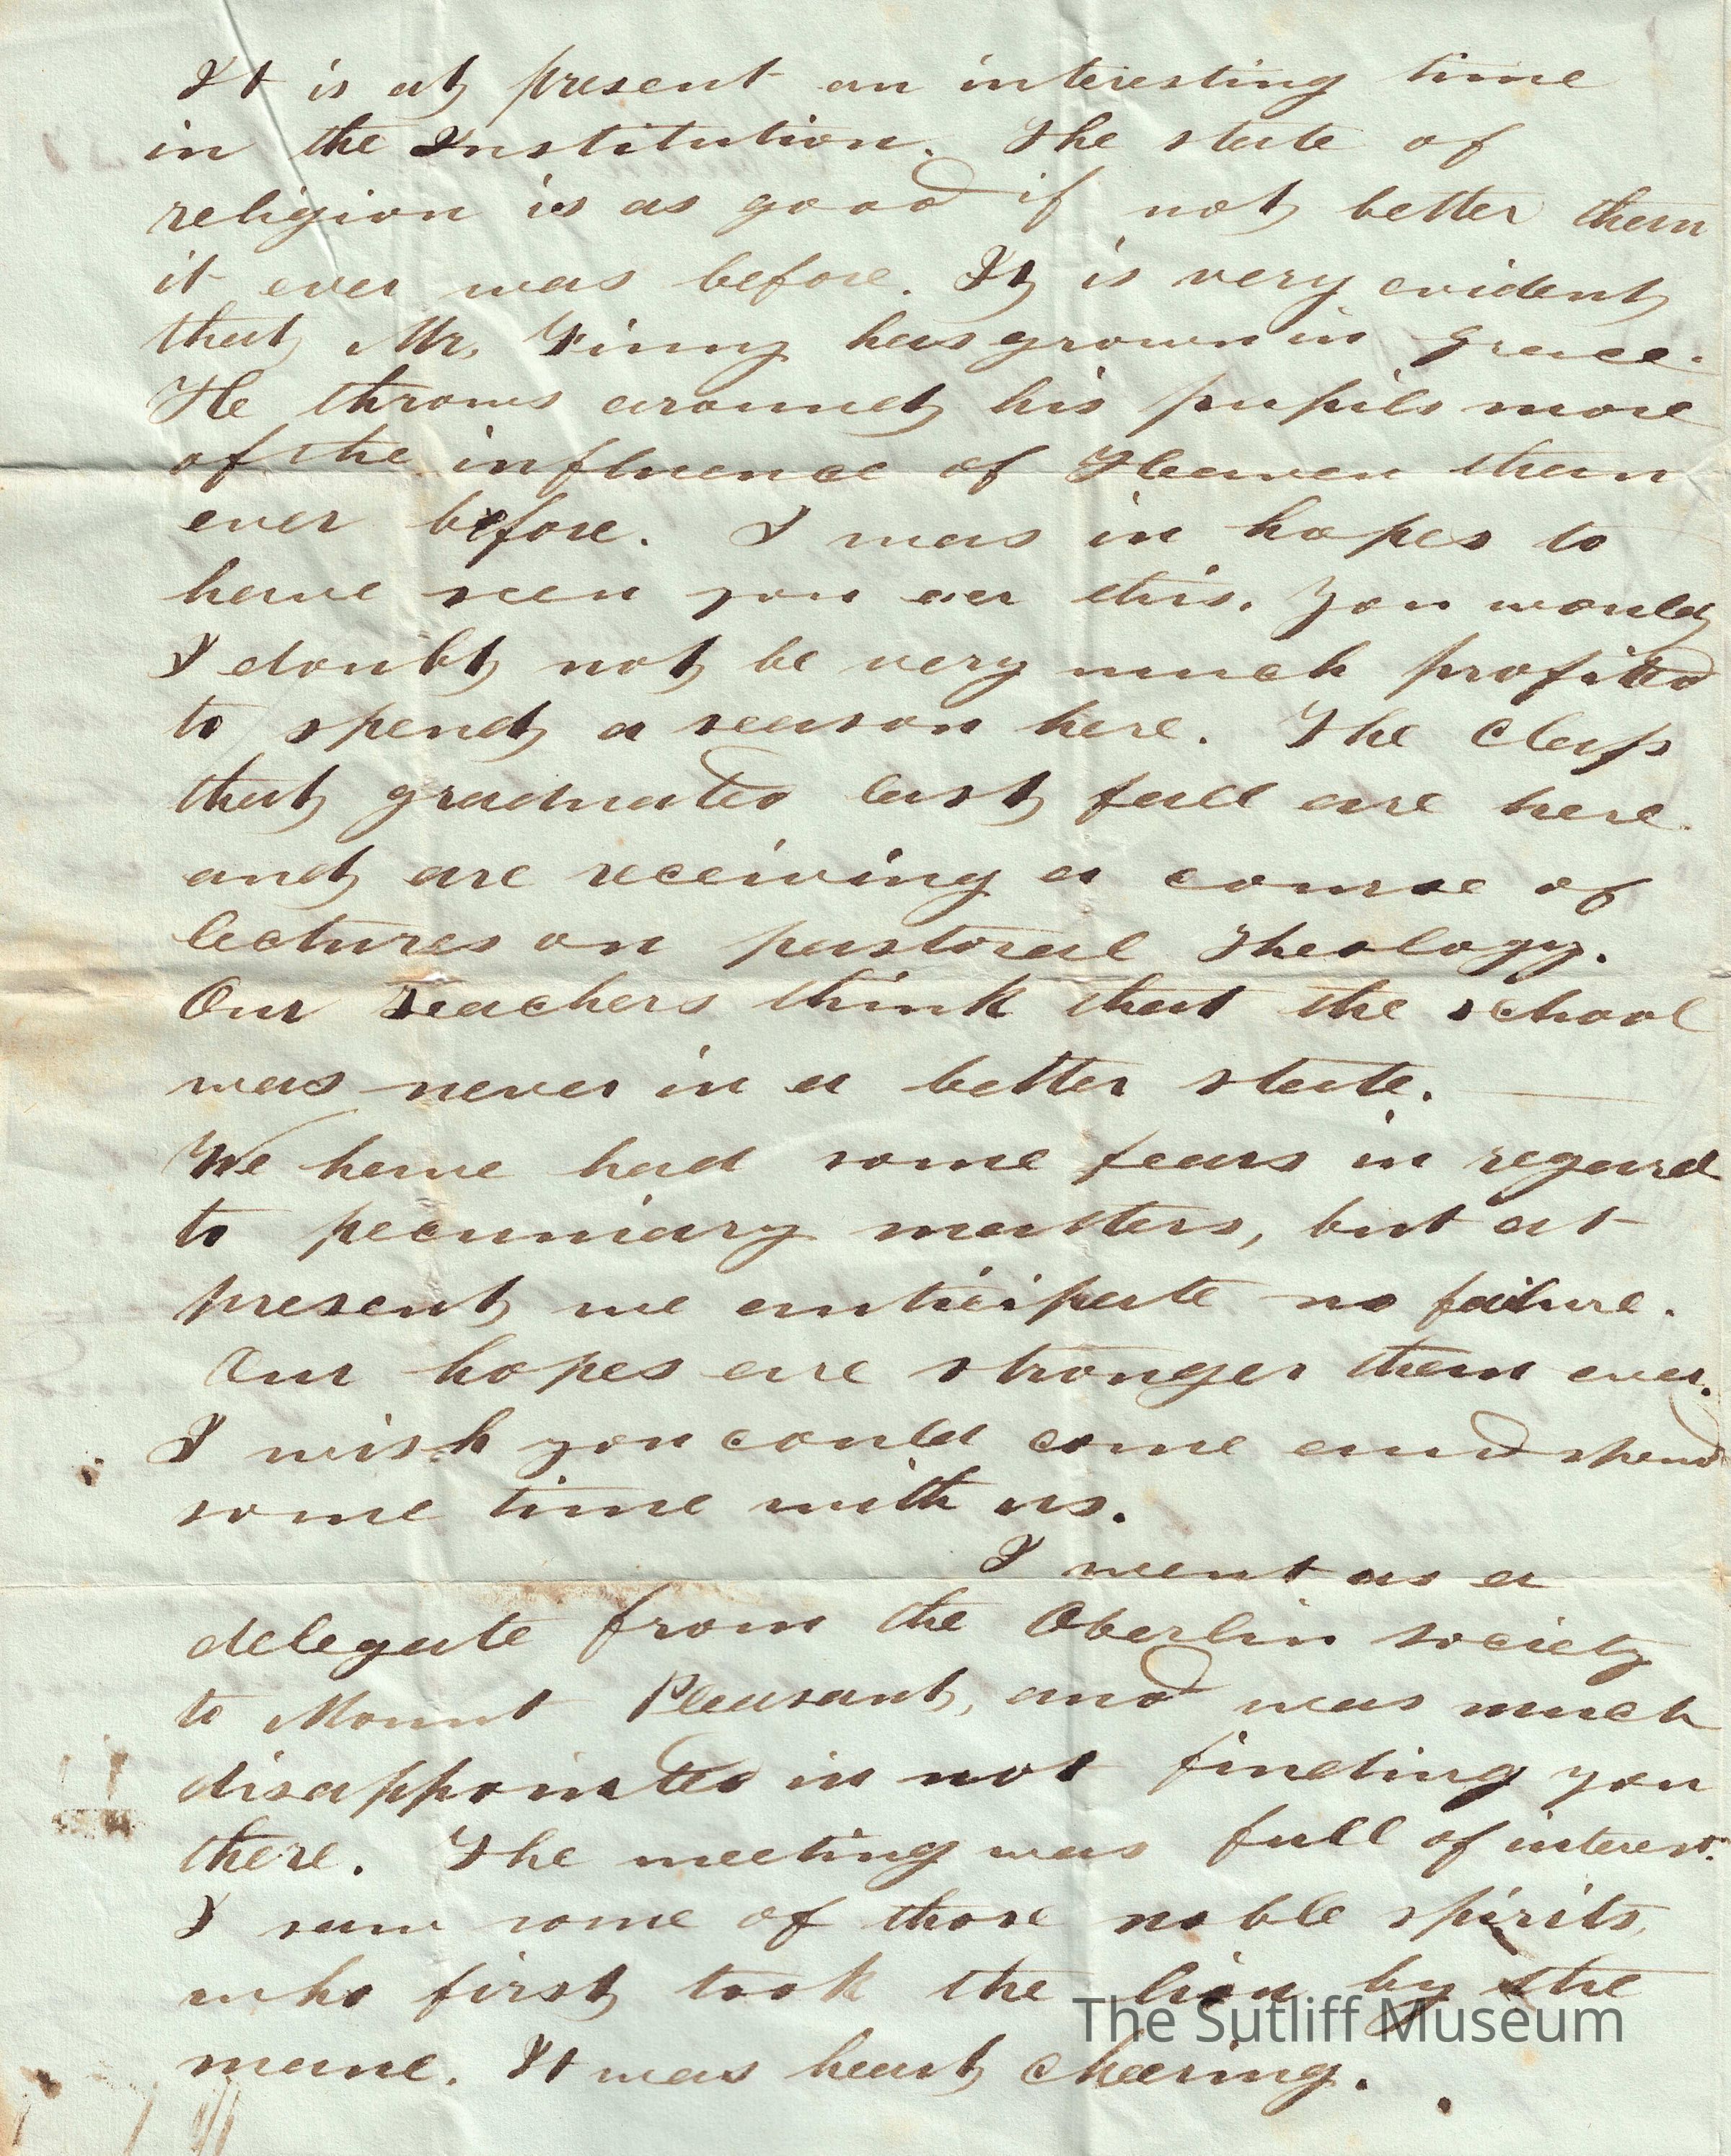 It is at present an interesting time
in the Institution. The state of
religion is as good if not better than
it ever was before. It is very evident
that Mr. Finny has grown in grace.
He throws around his pupils more
of the influence of Heaven than
ever before. I was in hopes to
have seen you ere this. You would
I doubt not be very much profited
to spend a season here. The Class
that graduated last fall are here
and are receiving a course of
lectures on pastoral Theology.
Our Teachers think that the school
was never in a better state.
We have had some fears in regard
to pecuniary matters, but at
present we anticipate no failure.
Our hopes are stronger than ever.
I wish you could come and spend
some time with us.
I went as a
delegate from the Oberlin society
to Mount Pleasant, and was much
disappointed in not finding you
there. The meeting was full of interest.
I saw some of those noble spirits,
who first took the lion by the
mane. It was heart cheering.
The Sutliff Museum